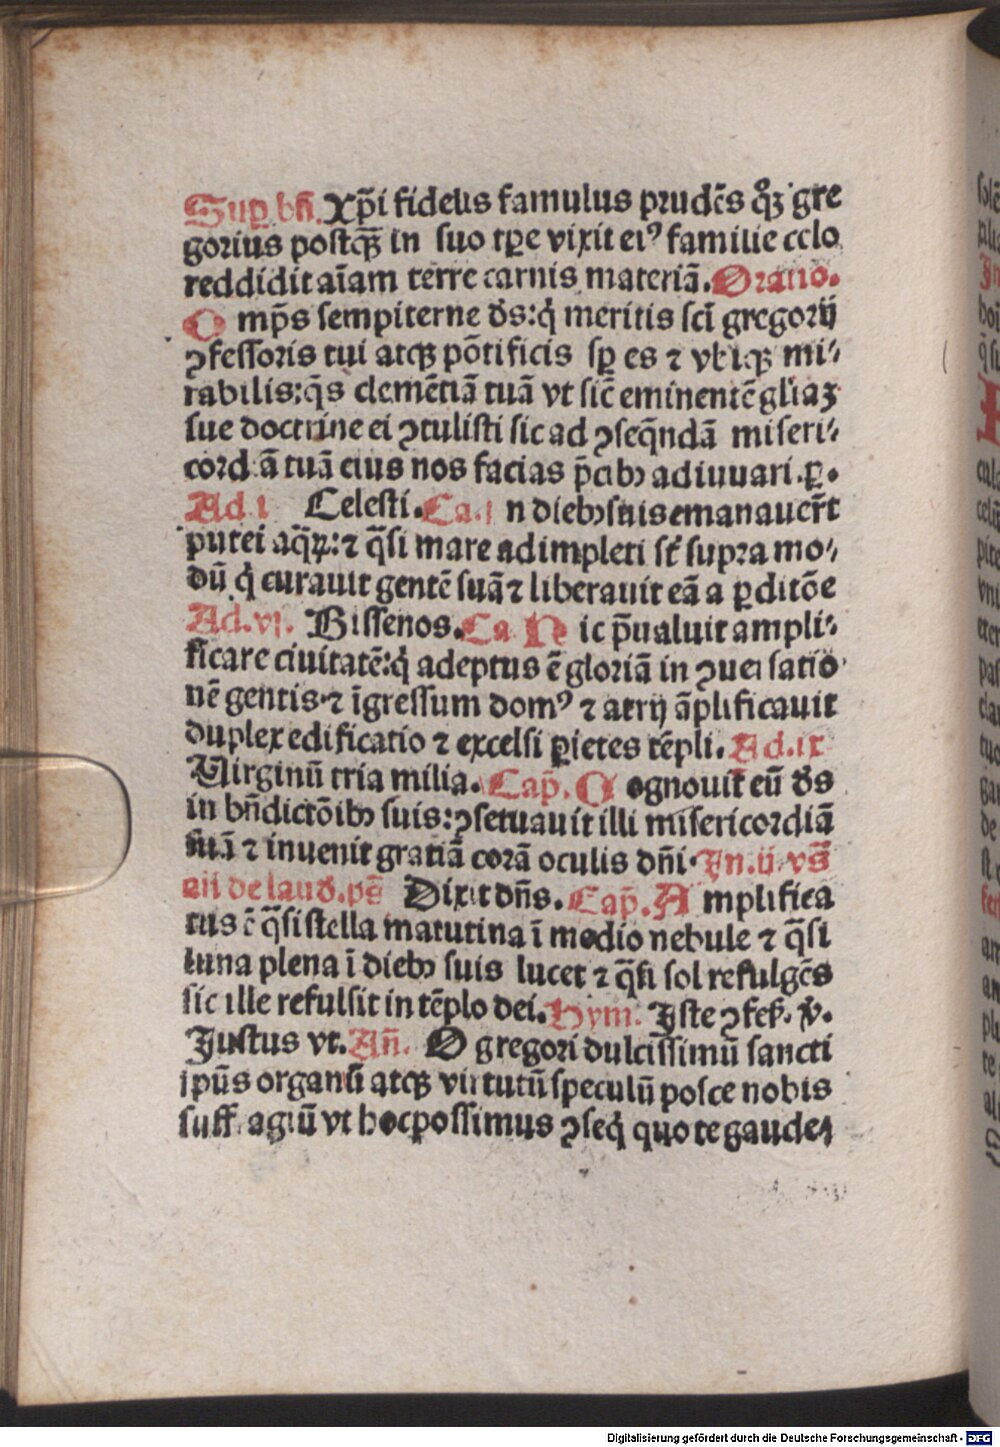 Suꝑ bn̄. Xp̄i fidelis famulus prudēs qͦꝫ gre
gorius postqꝫ̄ in suo tꝑe vixit eiꝰ familie celo
reddidit aīam terre carnis materiā. Oratio.
O mp̄s sempiterne ds̄: q̇ meritis scī gregorij
ꝯfessoris tui atqꝫ pōtificis sꝑ es ⁊ vbiqꝫ mi⸗
rabilis: q̄s clemētiā tuā vt sic̄ eminentē gl'iaꝫ
sue doctrine ei ꝯtulisti sic ad ꝯseq̄ndā miseri⸗
cordiā tuā eius nos facias p̄cibꝰ adiuuari. ꝑ.
Ad .i. Celesti. Ca. I n diebꝰ suis emanauer̄t
putei aq̄ꝝ: ⁊ q̄si mare adimpleti st̄ supra mo⸗
dū q̇ curauit gentē suā ⁊ liberauit eā a ꝑditōe
Ad .vj. Bissenos. Ca. H ic p̄ualuit ampli⸗
ficare ciuitatē: q̇ adeptus ē gloriā in ꝯuersatio
nē gentis: ⁊ īgressum domꝰ ⁊ atrij āplificauit
duplex edificatio ⁊ excelsi ꝑietes tēpli. Ad .ix
Virginū tria milia. Cap̄. C ognouit eū ds̄
in bn̄dictōibꝰ suis: ꝯseruauit illi misericordiā
suā ⁊ inuenit gratiā corā oculis dn̄i. In .ij. vs̄
aij de laud. ps̄ Dixit dn̄s. Cap̄. A mplifica
tus ē q̄si stella matutina ī medio nebule ⁊ q̄si
luna plena ī diebꝰ suis lucet ⁊ q̄si sol refulgēs
sic ille refulsit in tēplo dei. Hym. Iste ꝯfes̄. v̄.
Justus vt. An̄. O gregori dulcissimū sancti
spūs organū atqꝫ virtutū speculū posce nobis
suffragiū vt hoc possimus ꝯseq̇ quo te gaude⸗
Digitalisierung gefördert durch die Deutsche Forschungsgemeinschaft - DFG